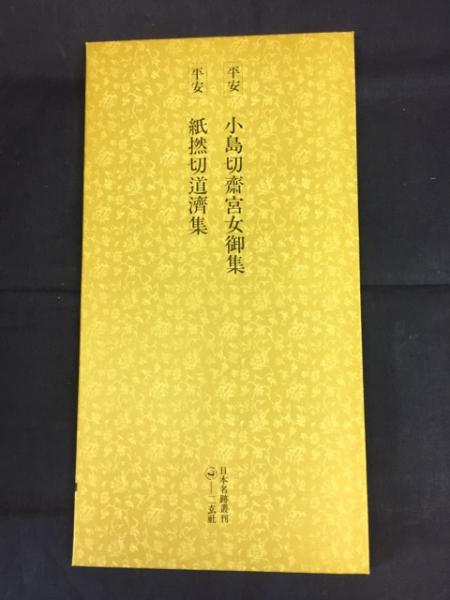 平安 小島切齋宮女御集
平安 紙撚切道濟集
日本名跡叢刊
二玄社